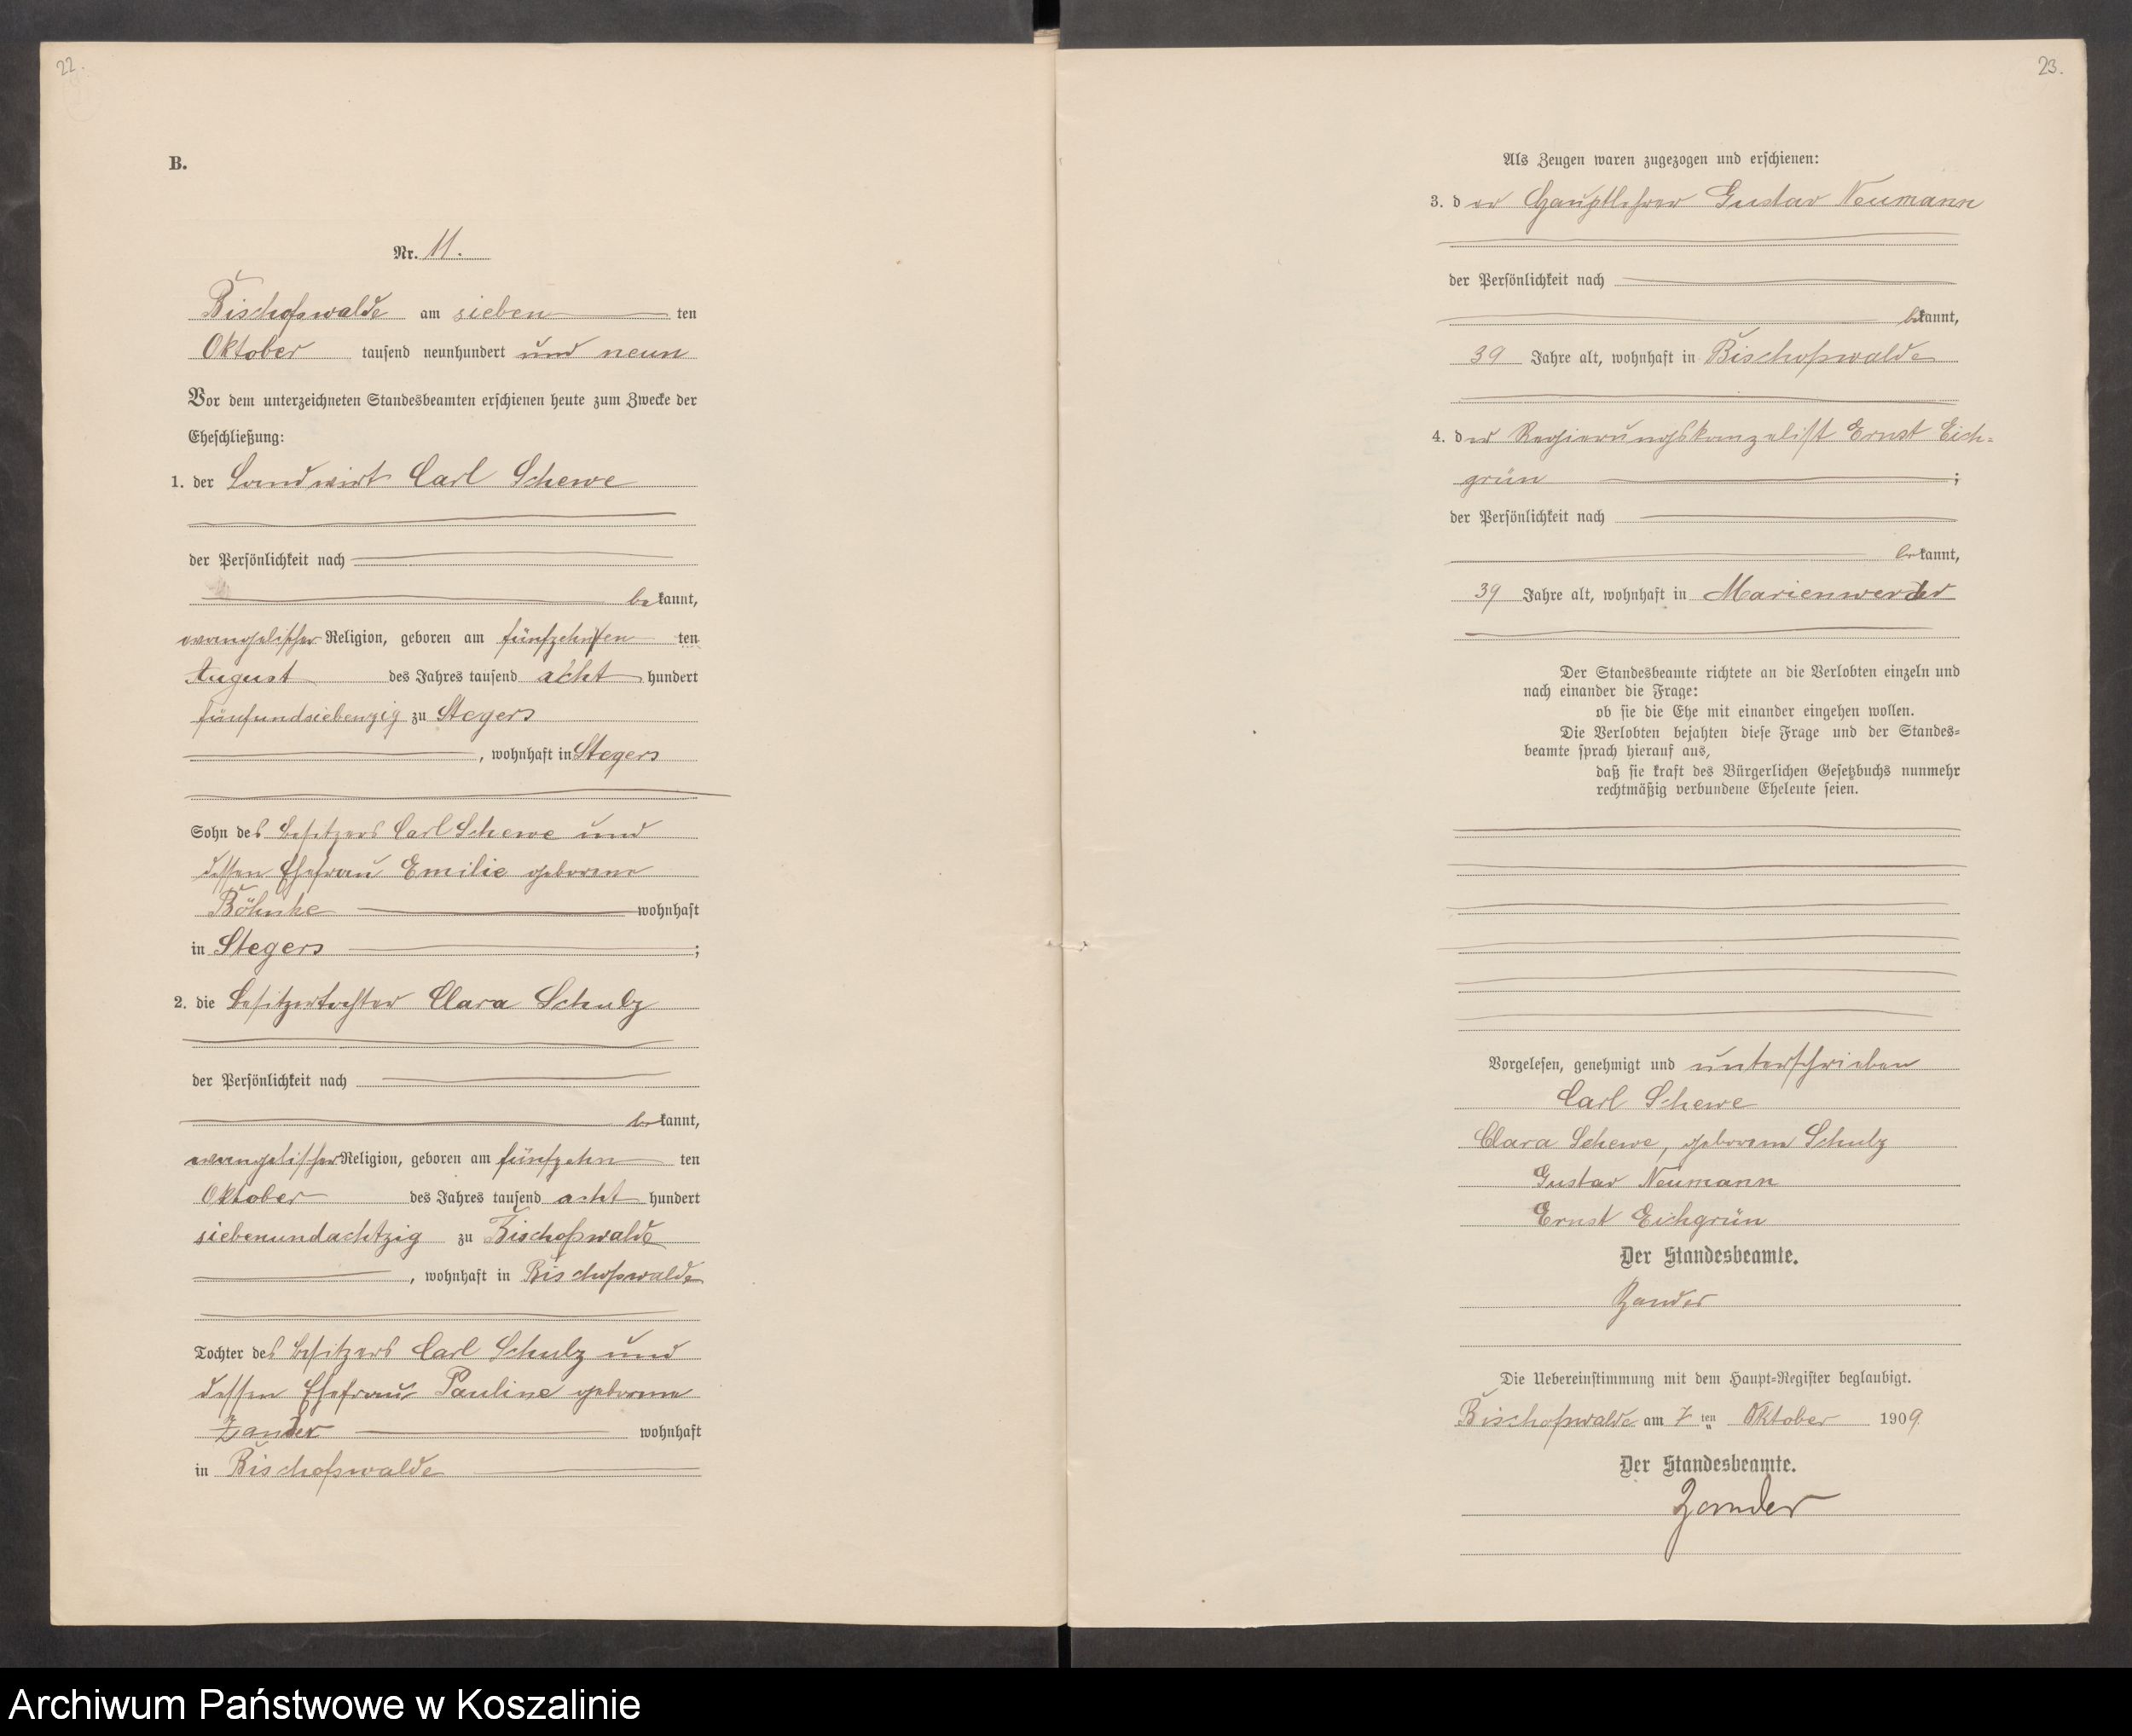 22.
B.
Nr. 11.
Bischofswalde am sieben ten
Oktober tausend neunhundert und neun
Vor dem unterzeichneten Standesbeamten erschienen heute zum Zwecke der
Eheschließung:
1. der Landwirt Carl Schewe
der Persönlichkeit nach
bekannt,
evangelischer Religion, geboren am fünfzehnten ten
August des Jahres tausend acht hundert
fünfundsiebenzig zu Stegers
, wohnhaft in Stegers
Sohn des Besitzers Carl Schewe und
dessen Ehefrau Emilie geborene
Böhnke wohnhaft
in Stegers ;
2. die Besitzertochter Clara Schulz
der Persönlichkeit nach
bekannt,
evangelischer Religion, geboren am fünfzehn ten
Oktober des Jahres tausend acht hundert
siebenundachtzig zu Bischofswalde
, wohnhaft in Bischofswalde
Tochter des Besitzers Carl Schulz und
dessen Ehefrau Pauline geborene
Zander wohnhaft
in Bischofswalde
23.
Als Zeugen waren zugezogen und erschienen:
3. der Hauptlehrer Gustav Neumann
der Persönlichkeit nach
bekannt,
39 Jahre alt, wohnhaft in Bischofswalde
4. der Regierungskanzelist Ernst Eich=
grün ;
der Persönlichkeit nach
bekannt,
39 Jahre alt, wohnhaft in Marienwerder
Der Standesbeamte richtete an die Verlobten einzeln und
nach einander die Frage:
ob sie die Ehe mit einander eingehen wollen.
Die Verlobten bejahten diese Frage und der Standes=
beamte sprach hierauf aus,
daß sie kraft des Bürgerlichen Gesetzbuchs nunmehr
rechtmäßig verbundene Eheleute seien.
Vorgelesen, genehmigt und unterschrieben
Carl Schewe
Clara Schewe, geborene Schulz
Gustav Neumann
Ernst Eichgrün
Der Standesbeamte.
Zander
Die Uebereinstimmung mit dem Haupt=Register beglaubigt.
Bischofswalde am 7 ten Oktober 1909.
Der Standesbeamte.
Zander
Archiwum Państwowe w Koszalinie